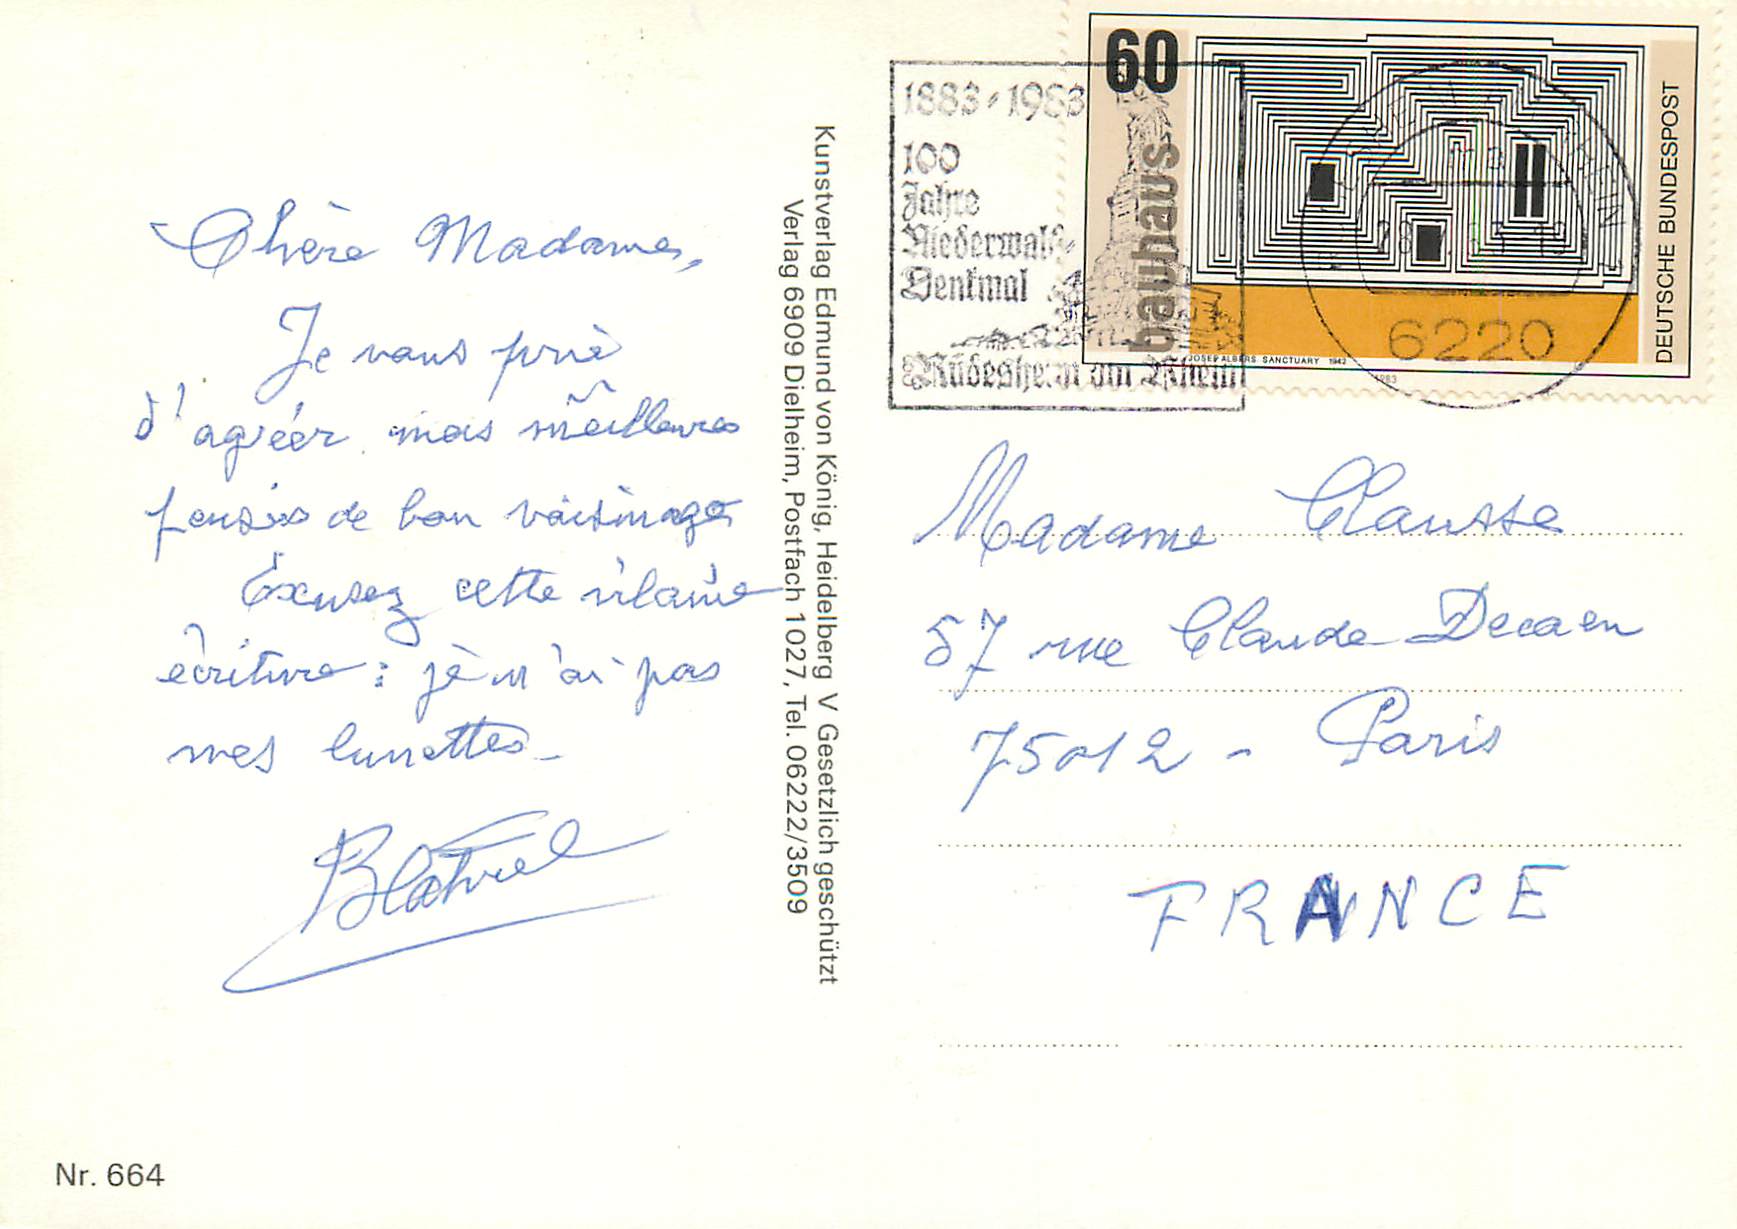 Chère Madame,
Je vous prie
d'agréer mes meilleures
pensées de bon voisinage
Éxusez cette vilaine
écriture : je n'ai pas
mes lunettes_
Kunstverlag Edmund von König, Heidelberg V Gesetzlich geschützt
Verlag 6909 Dielheim, Postfach 1027, Tel. 06222/3509
1883-1983
100
Jahre
Niederwald-
Denkmal
Rüdesheim am Rhein
60
bauhaus
DEUTSCHE BUNDESPOST
JOSEF ALBERS SANCTUARY 1942
1983
6220
Madame Clausse
57 rue Claude Decaen
75012 - Paris
FRANCE
Nr. 664